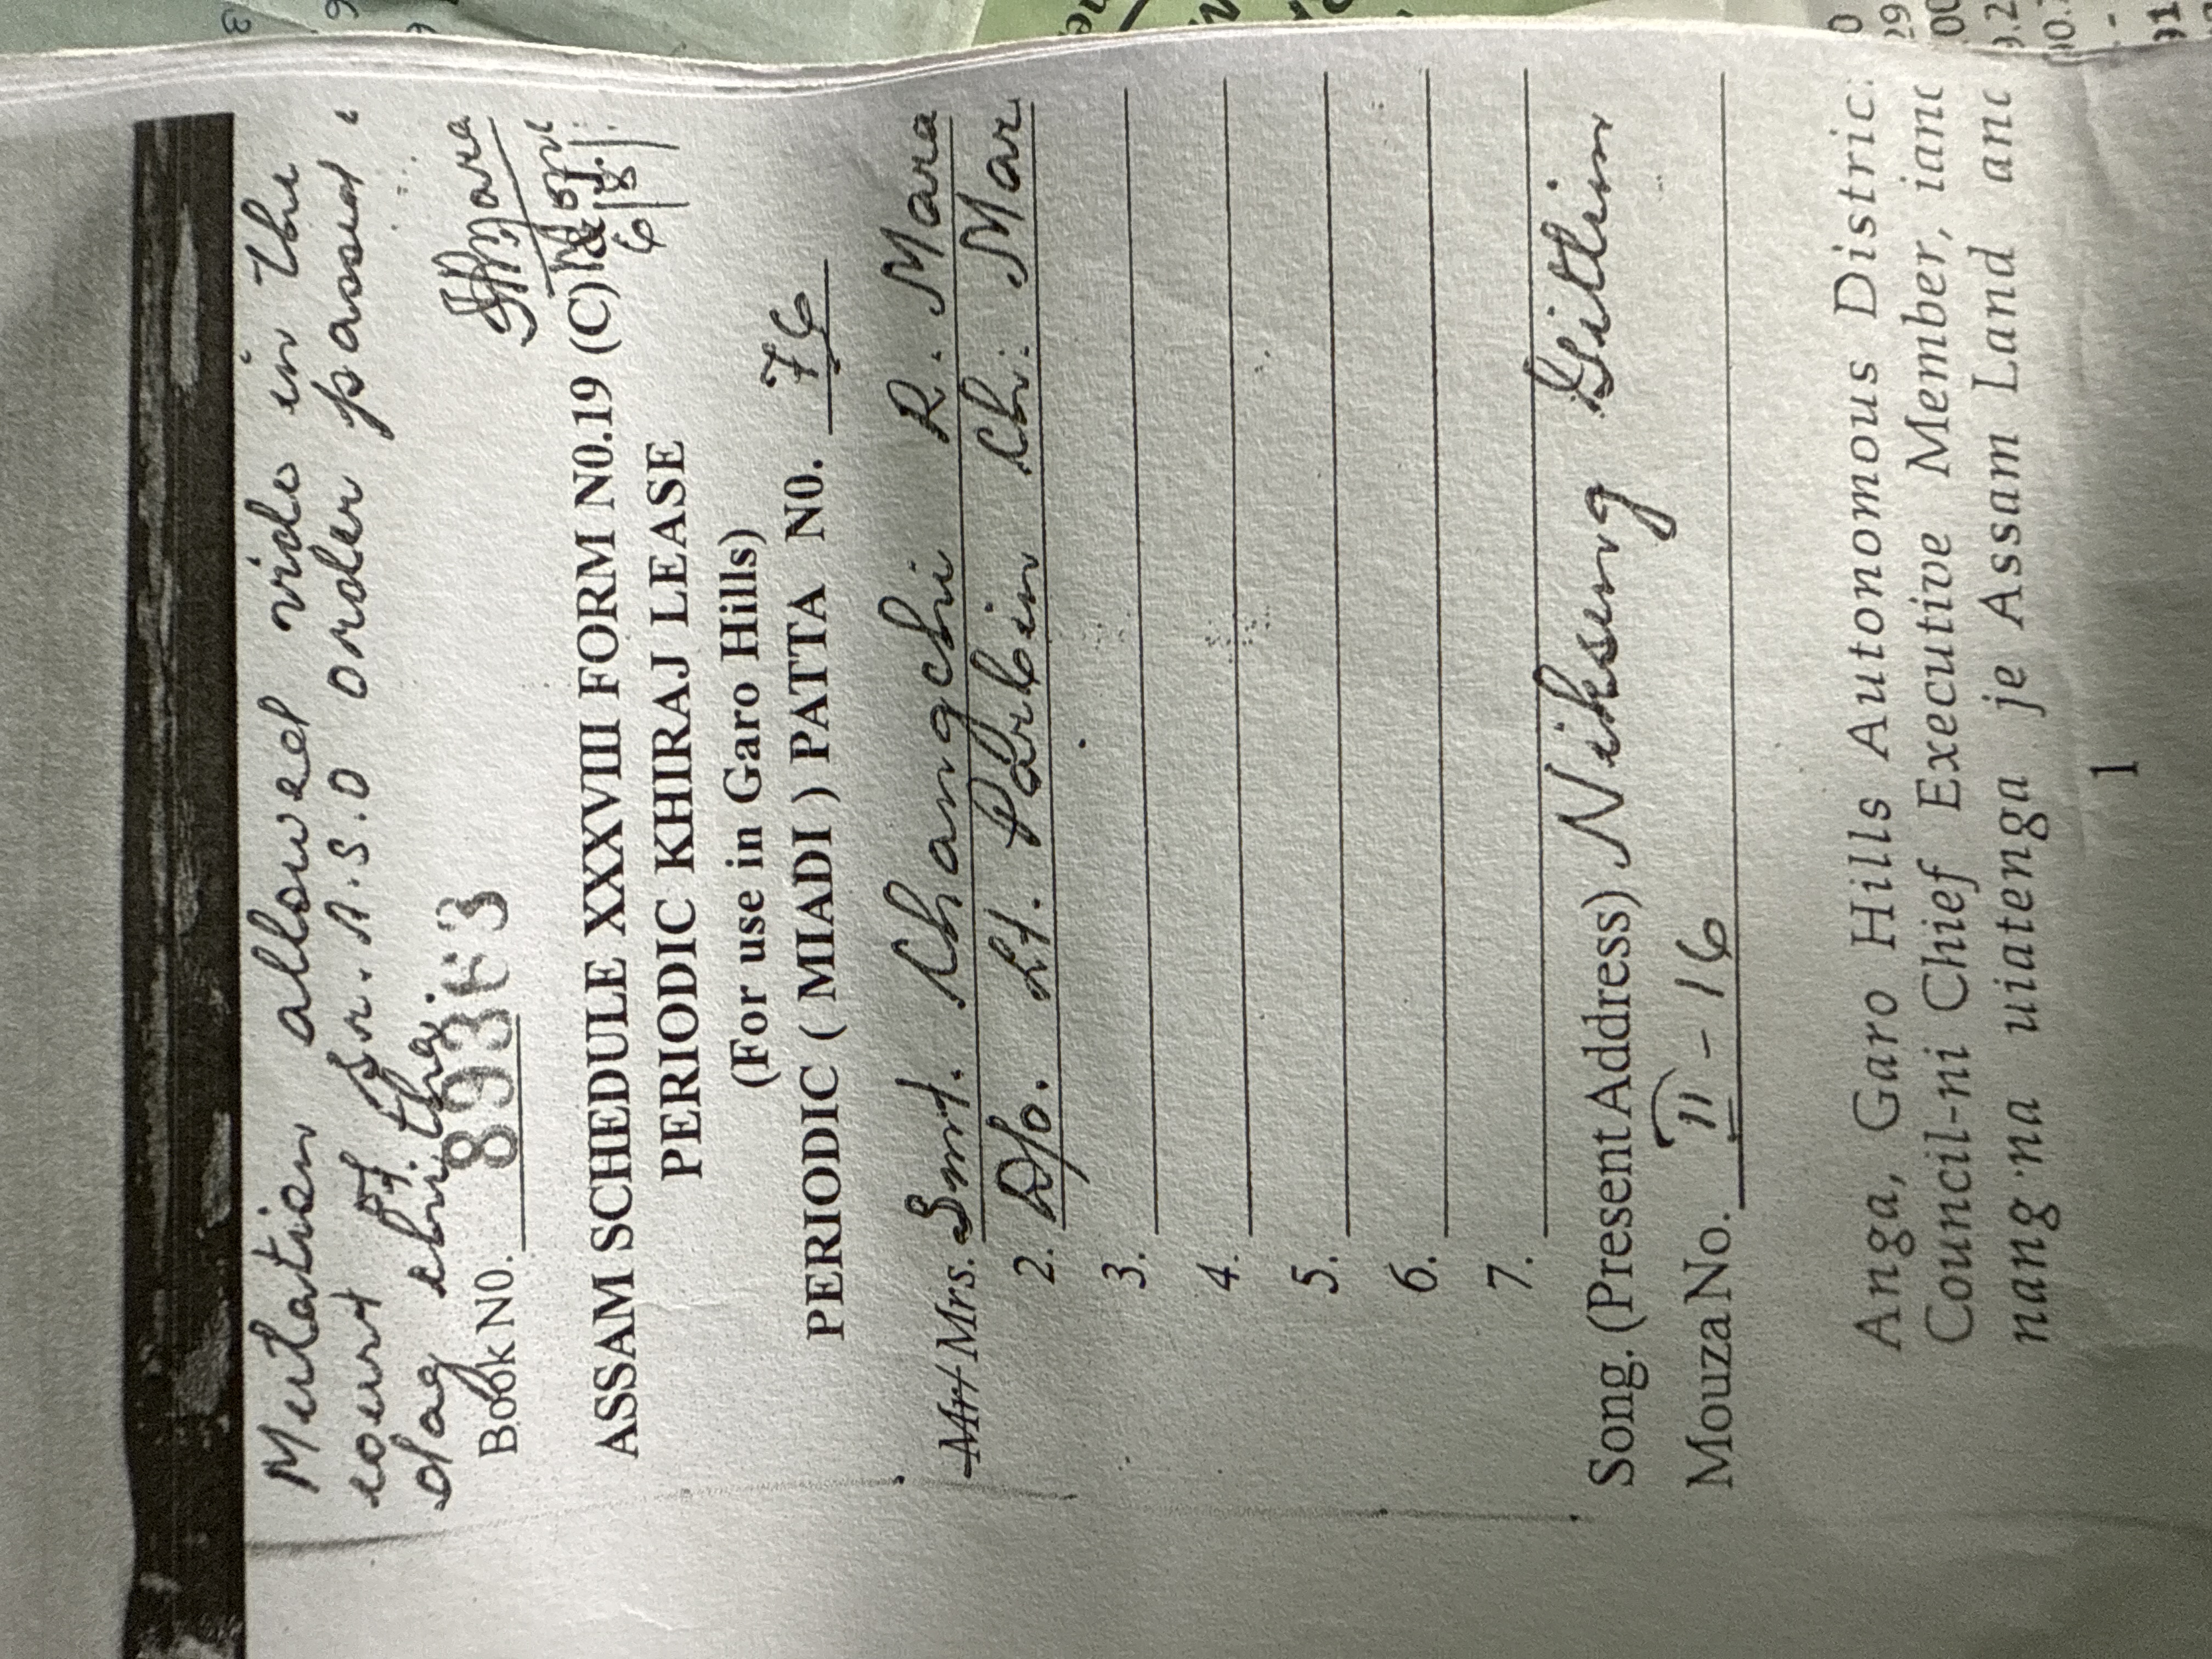 Mutation allowed vide in the
court of Sr. A.S.O order passed
dag chitha.
Book N0. 89363
ASSAM SCHEDULE XXXVIII FORM N0.19 (C)
PERIODIC KHIRAJ LEASE
(For use in Garo Hills)
PERIODIC ( MIADI ) PATTA N0. 76
Mr/Mrs. Smt. Changchi R. Mara
2. D/o. Lt. Parbin Ch. Mar
3.
4.
5.
6.
7.
Song. (Present Address) Nikseng Gittim
Mouza No. II - 16
Anga, Garo Hills Autonomous Distric
Council-ni Chief Executive Member, ian
nang·na uiatenga je Assam Land an
1